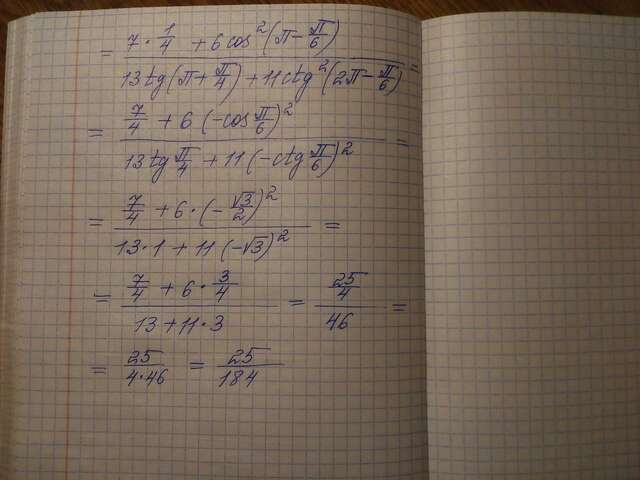 = (7 · 1/4 + 6 cos²(π - π/6)) / (13 tg(π + π/4) + 11 ctg²(2π - π/6)) =
= (7/4 + 6 (-cos π/6)²) / (13 tg π/4 + 11 (-ctg π/6)²) =
= (7/4 + 6 · (-√3/2)²) / (13 · 1 + 11 (-√3)²) =
= (7/4 + 6 · 3/4) / (13 + 11 · 3) = (25/4) / 46 =
= 25 / (4 · 46) = 25 / 184